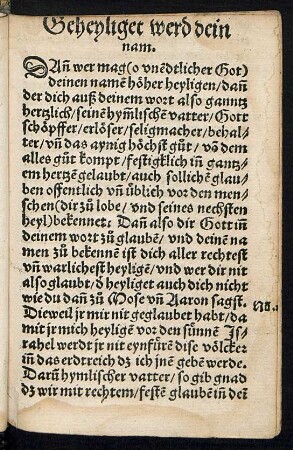 Geheyliget werd dein
nam.
DAñ wer mag (o vnẽdtlicher Got)
deinen namẽ höher heyligen/dañ
der dich auß deinem wort also ganntz
hertzlich/seinẽ hymlischẽ vatter/Gott
schöpffer/erlöser/seligmacher/behal-
ter/vñ das aynig höchst gůt/võ dem
alles gůt kompt/festigklich in gantz-
em hertzẽ gelaubt/auch sollichẽ glau-
ben offentlich vñ üblich vor den men-
schen (dir zů lobe/vnd seines nechsten
heyl) bekennet: Dañ also dir Gott in
deinem wort zů glaubẽ/vnd deinẽ na
men zů bekennẽ ist dich aller rechtest
vñ warlichest heyligẽ/vnd wer dir nit
also glaubt/ď heyliget auch dich nicht
wie du dañ zů Mose vñ Aaron sagst.
Dieweil jr mir nit geglaubet habt/da
mit jr mich heyligẽ vor den sünnẽ Js-
rahel werdt jr nit eynfürẽ dise völcker
in das erdtreich dz ich jnẽ gebẽ werde.
Darũ hymlischer vatter/so gib gnad
dz wir mit rechtem/festẽ glaubẽ in dei